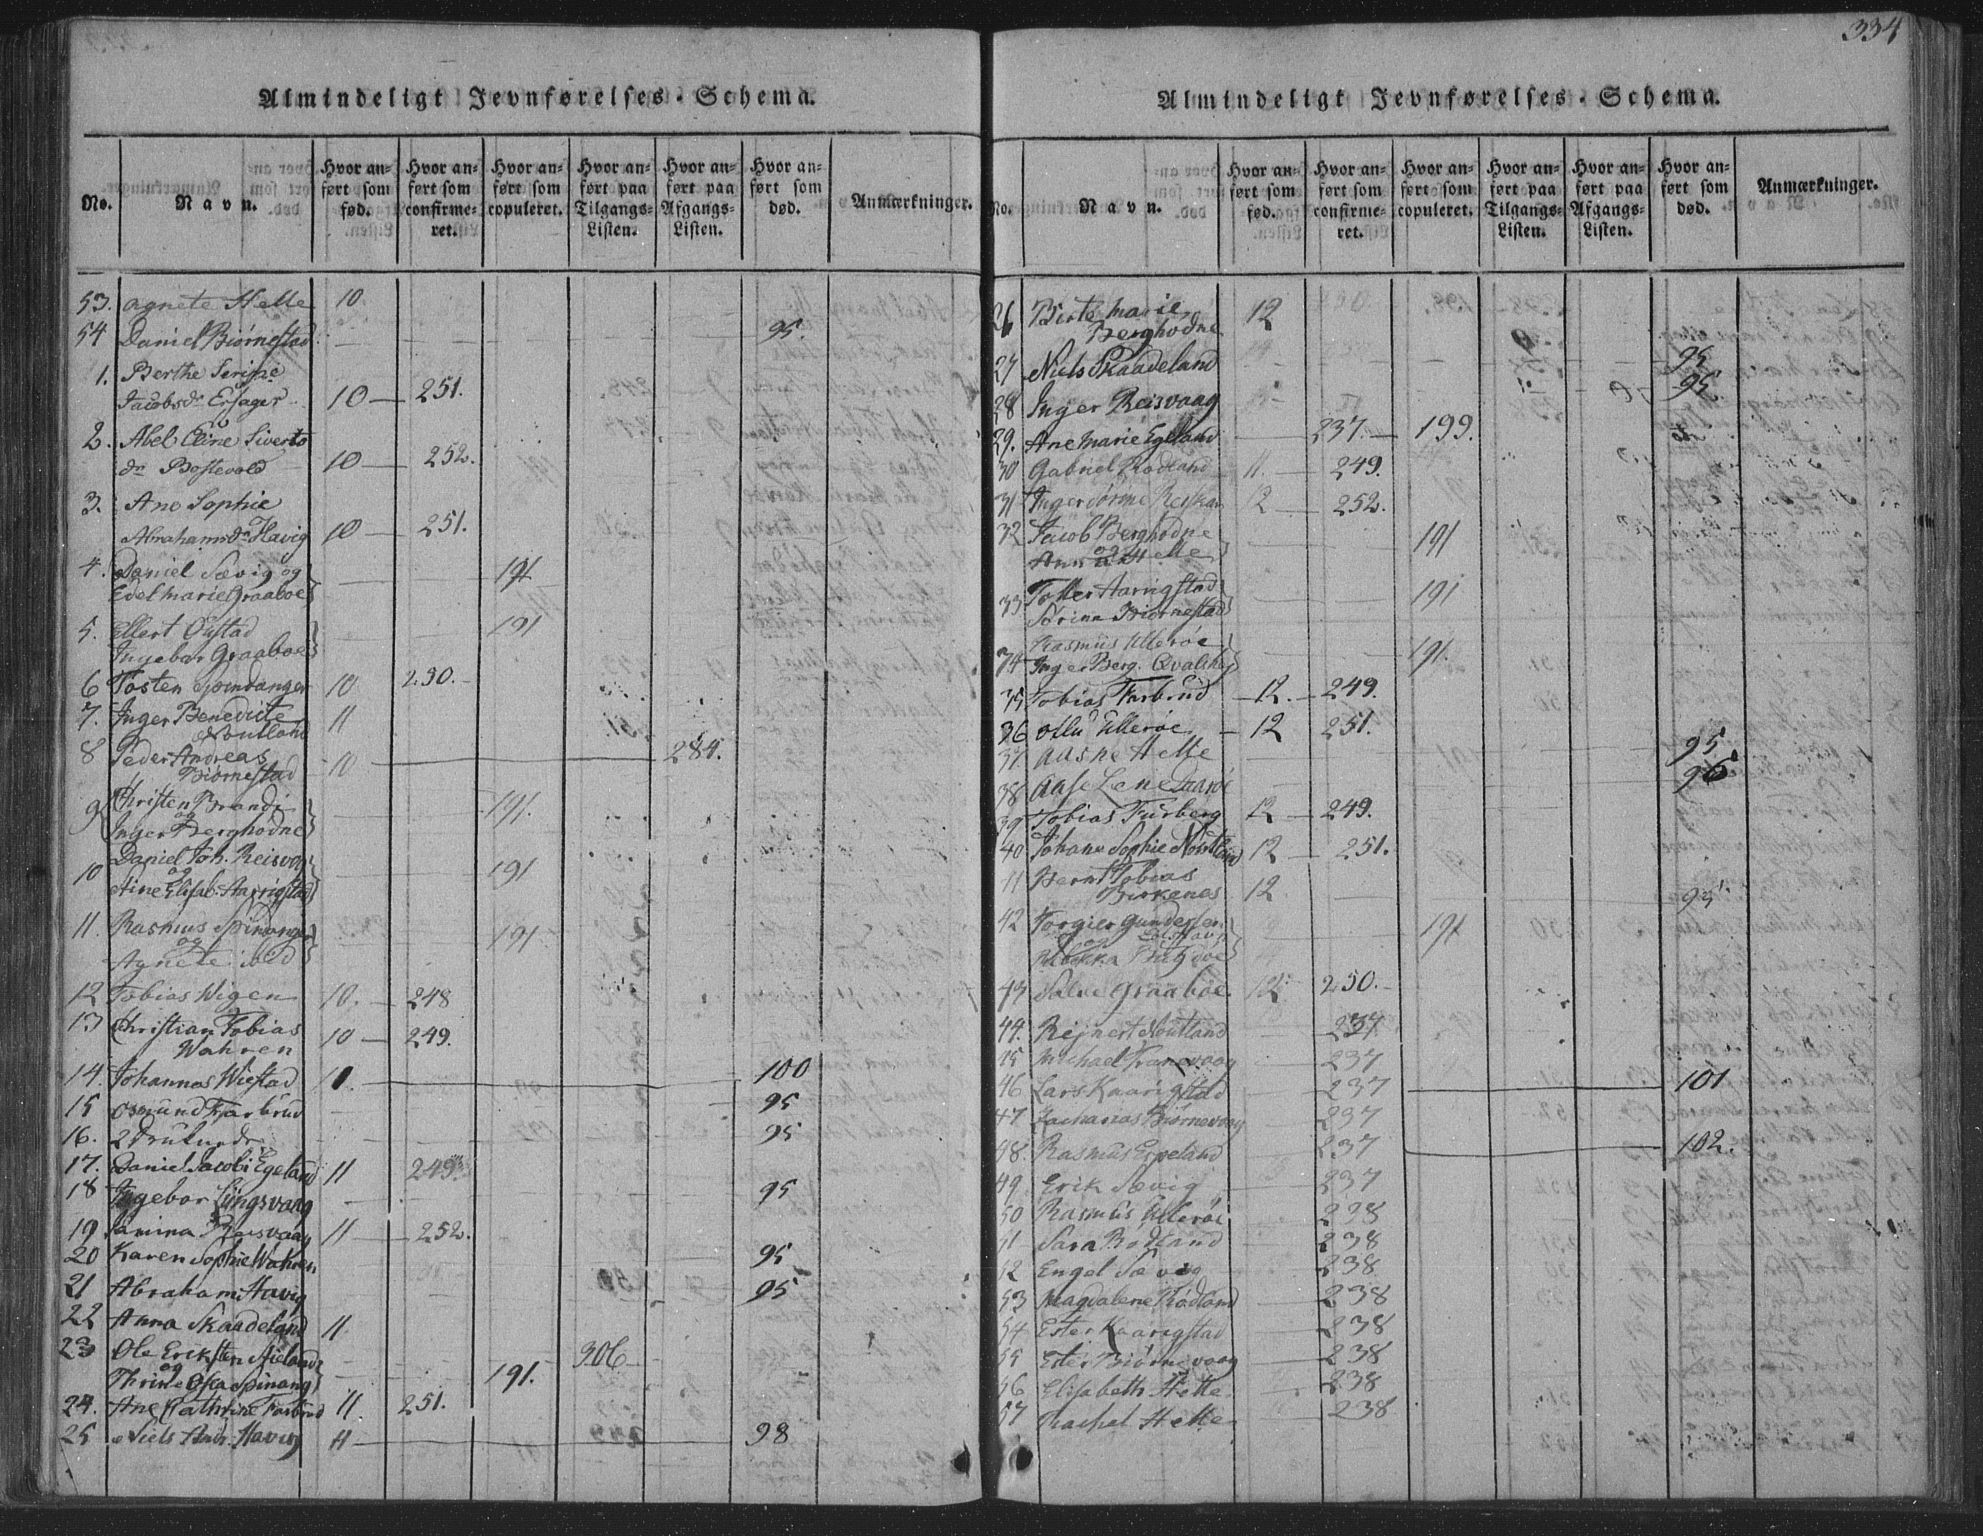 334
Almindeligt Jevnførelses-Schema.
No.
Navn.
Hvor anført som fød.
Hvor anført som confirmeret.
Hvor anført som copuleret.
Hvor anført paa Tilgangs-Listen.
Hvor anført paa Afgangs-Listen.
Hvor anført som død.
Anmærkninger.
53. Agnete Helle 10
54 Daniel Biørnestad 95.
1. Berthe Serine
Jacobsdr Ersager 10 251.
2. Abel Eline Siverts
dr Bostevold 10 252.
3. Ane Sophie
Abrahamsdr Havig 10 251.
4. Daniel Sævig og
Edel Marie Graaboe 191
5. Ellert
Ingebor Graaboe 191
6 Tosten Spindanger 10 250.
7. Inger Benedicte
Noutland 11
8 Peder Andreas
Biørnestad 10 284.
9 Christen Brandi
og
Inger Berghodne 191.
10 Daniel Joh. Reisvog
og
Aine Elisab. Aarrigstad 191
11. Rasmus Spinanger
og
Agnete ibid 191
12 Tobias Wigen 10. 248
13 Christian Tobias
Wahren 10 249.
14. Johannes Wiestad 100
15 Osmund Farbrud 95
16. 2 95
17. Daniel Jacobi Egeland 11 249.
18 Ingebor Lüngsvaag 95
19 Janina 11 252.
20 Karen Sophie Wahren 95
21 Abraham Havig 95
22 Anna Skaadeland 11
23 Ole Eriksten 306
og
Thrine Spinang 191.
24. Ane Cathrine Farbrud 11 251.
25 Niels Andr. Havig 11 98
Almindeligt Jevnførelses-Schema.
No.
Navn.
Hvor anført som fød.
Hvor anført som confirmeret.
Hvor anført som copuleret.
Hvor anført paa Tilgangs-Listen.
Hvor anført paa Afgangs-Listen.
Hvor anført som død.
Anmærkninger.
26 Birte Marie
Berghodne 12
27 Niels Skaadeland 95
28 Inger Reisvaag 95
29. Ane Marie Egeland 237. 199.
30 Gabriel Rødland 11. 249.
31 Inger Sørine 12 252.
32 Jacob Berghodne
og
Anna Helle 191
33 Aarrigstad
Sørina Biørnestad 191
34 Rasmus Ullerøe
Inger Berg. 191.
35 Tobias Farbrud 12. 249.
36 Ullerøe 12 251.
37. Aasne Helle 95
38 Aase Lene 96
39 Tobias Furberg 12 249.
40 Johan Sophie Noutland 12 251.
41 Bernt Tobias
Birkenes 12 95
42 Torgier Gundersen
og
191
43 Salve Graaboe 12 250.
44. Rejnert Noutland 237
45 Michael Tranevaag 237
46 Lars Kaarigstad 237 101
47 Zacharias Biørnevaag 237
48. Rasmus Erpeland 237 102.
49. Erik Sævig 237
50 Rasmus Ullerøe 238
51 Sara Rødland 238
52 Engel Sævig 238
53 Magdalene Rødland 238
54 Ester Kaarigstad 238
55 Ester Biørnevaag 238
56 Elisabeth Helle 238
57 Rachel Helle 238